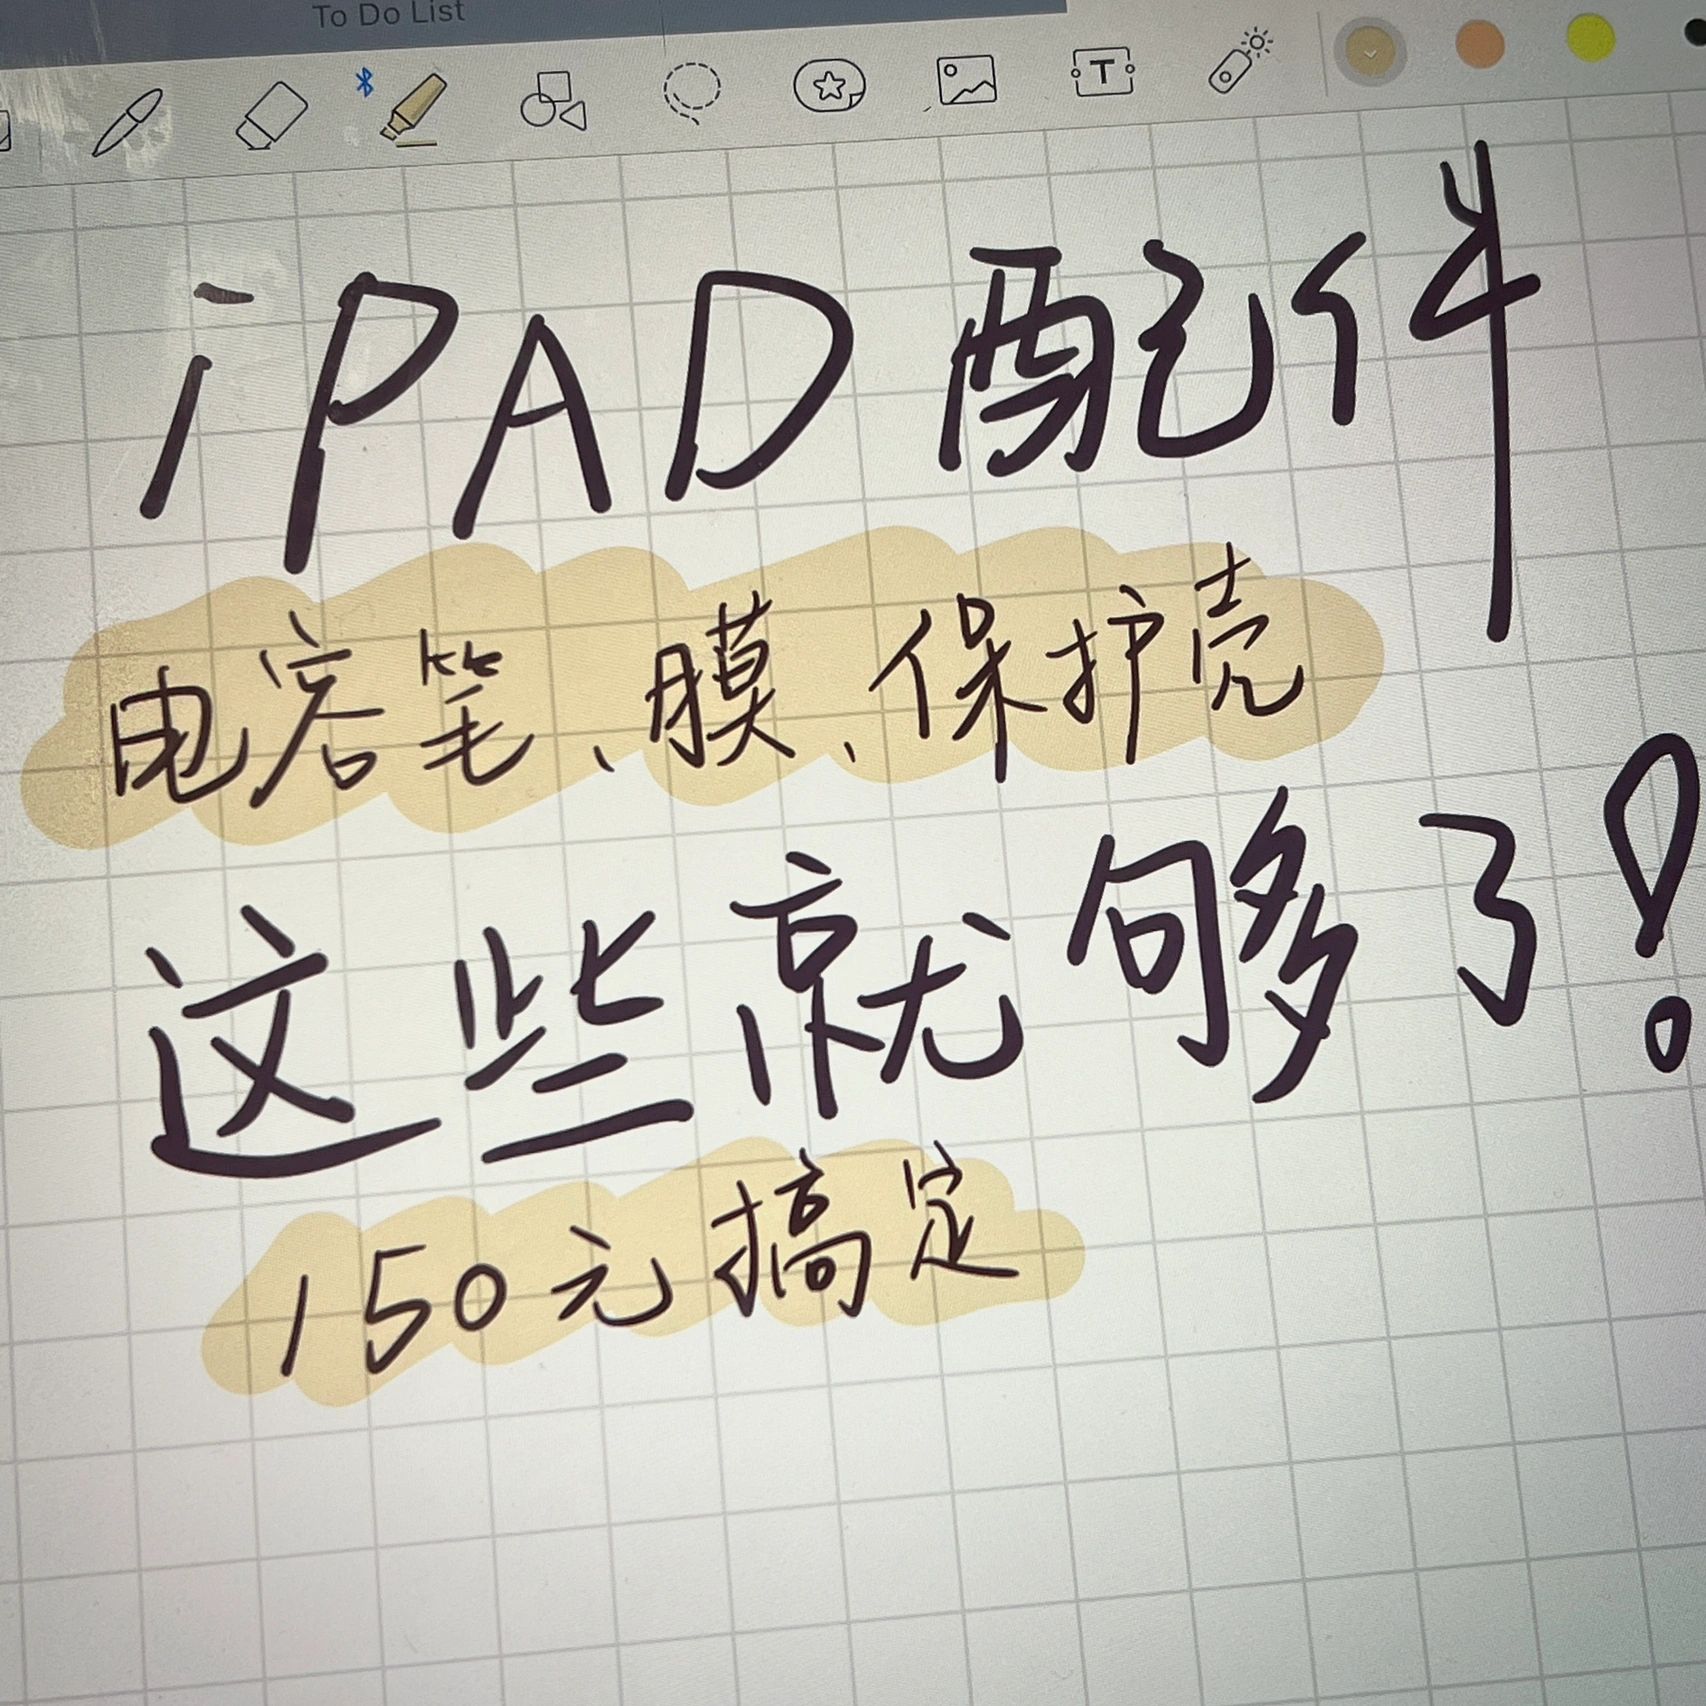 To Do List
iPAD配件
电容笔、膜、保护壳
这些就够了!
150元搞定